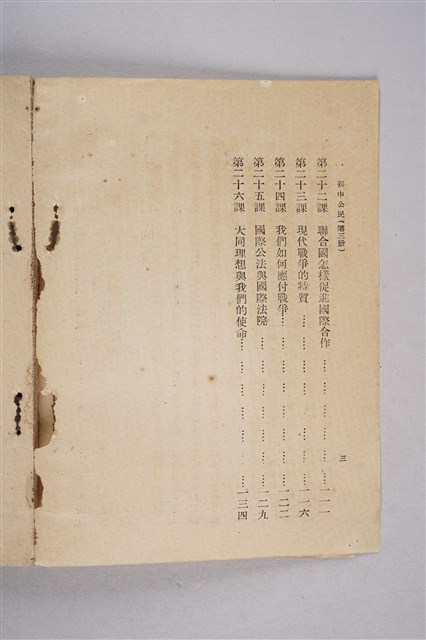 初中公民(第三册)
三
第二十二課 聯合國怎樣促進國際合作………………一一一
第二十三課 現代戰爭的特質………………一一六
第二十四課 我們如何應付戰爭………………一二二
第二十五課 國際公法與國際法院………………一二九
第二十六課 大同理想與我們的使命………………一三四